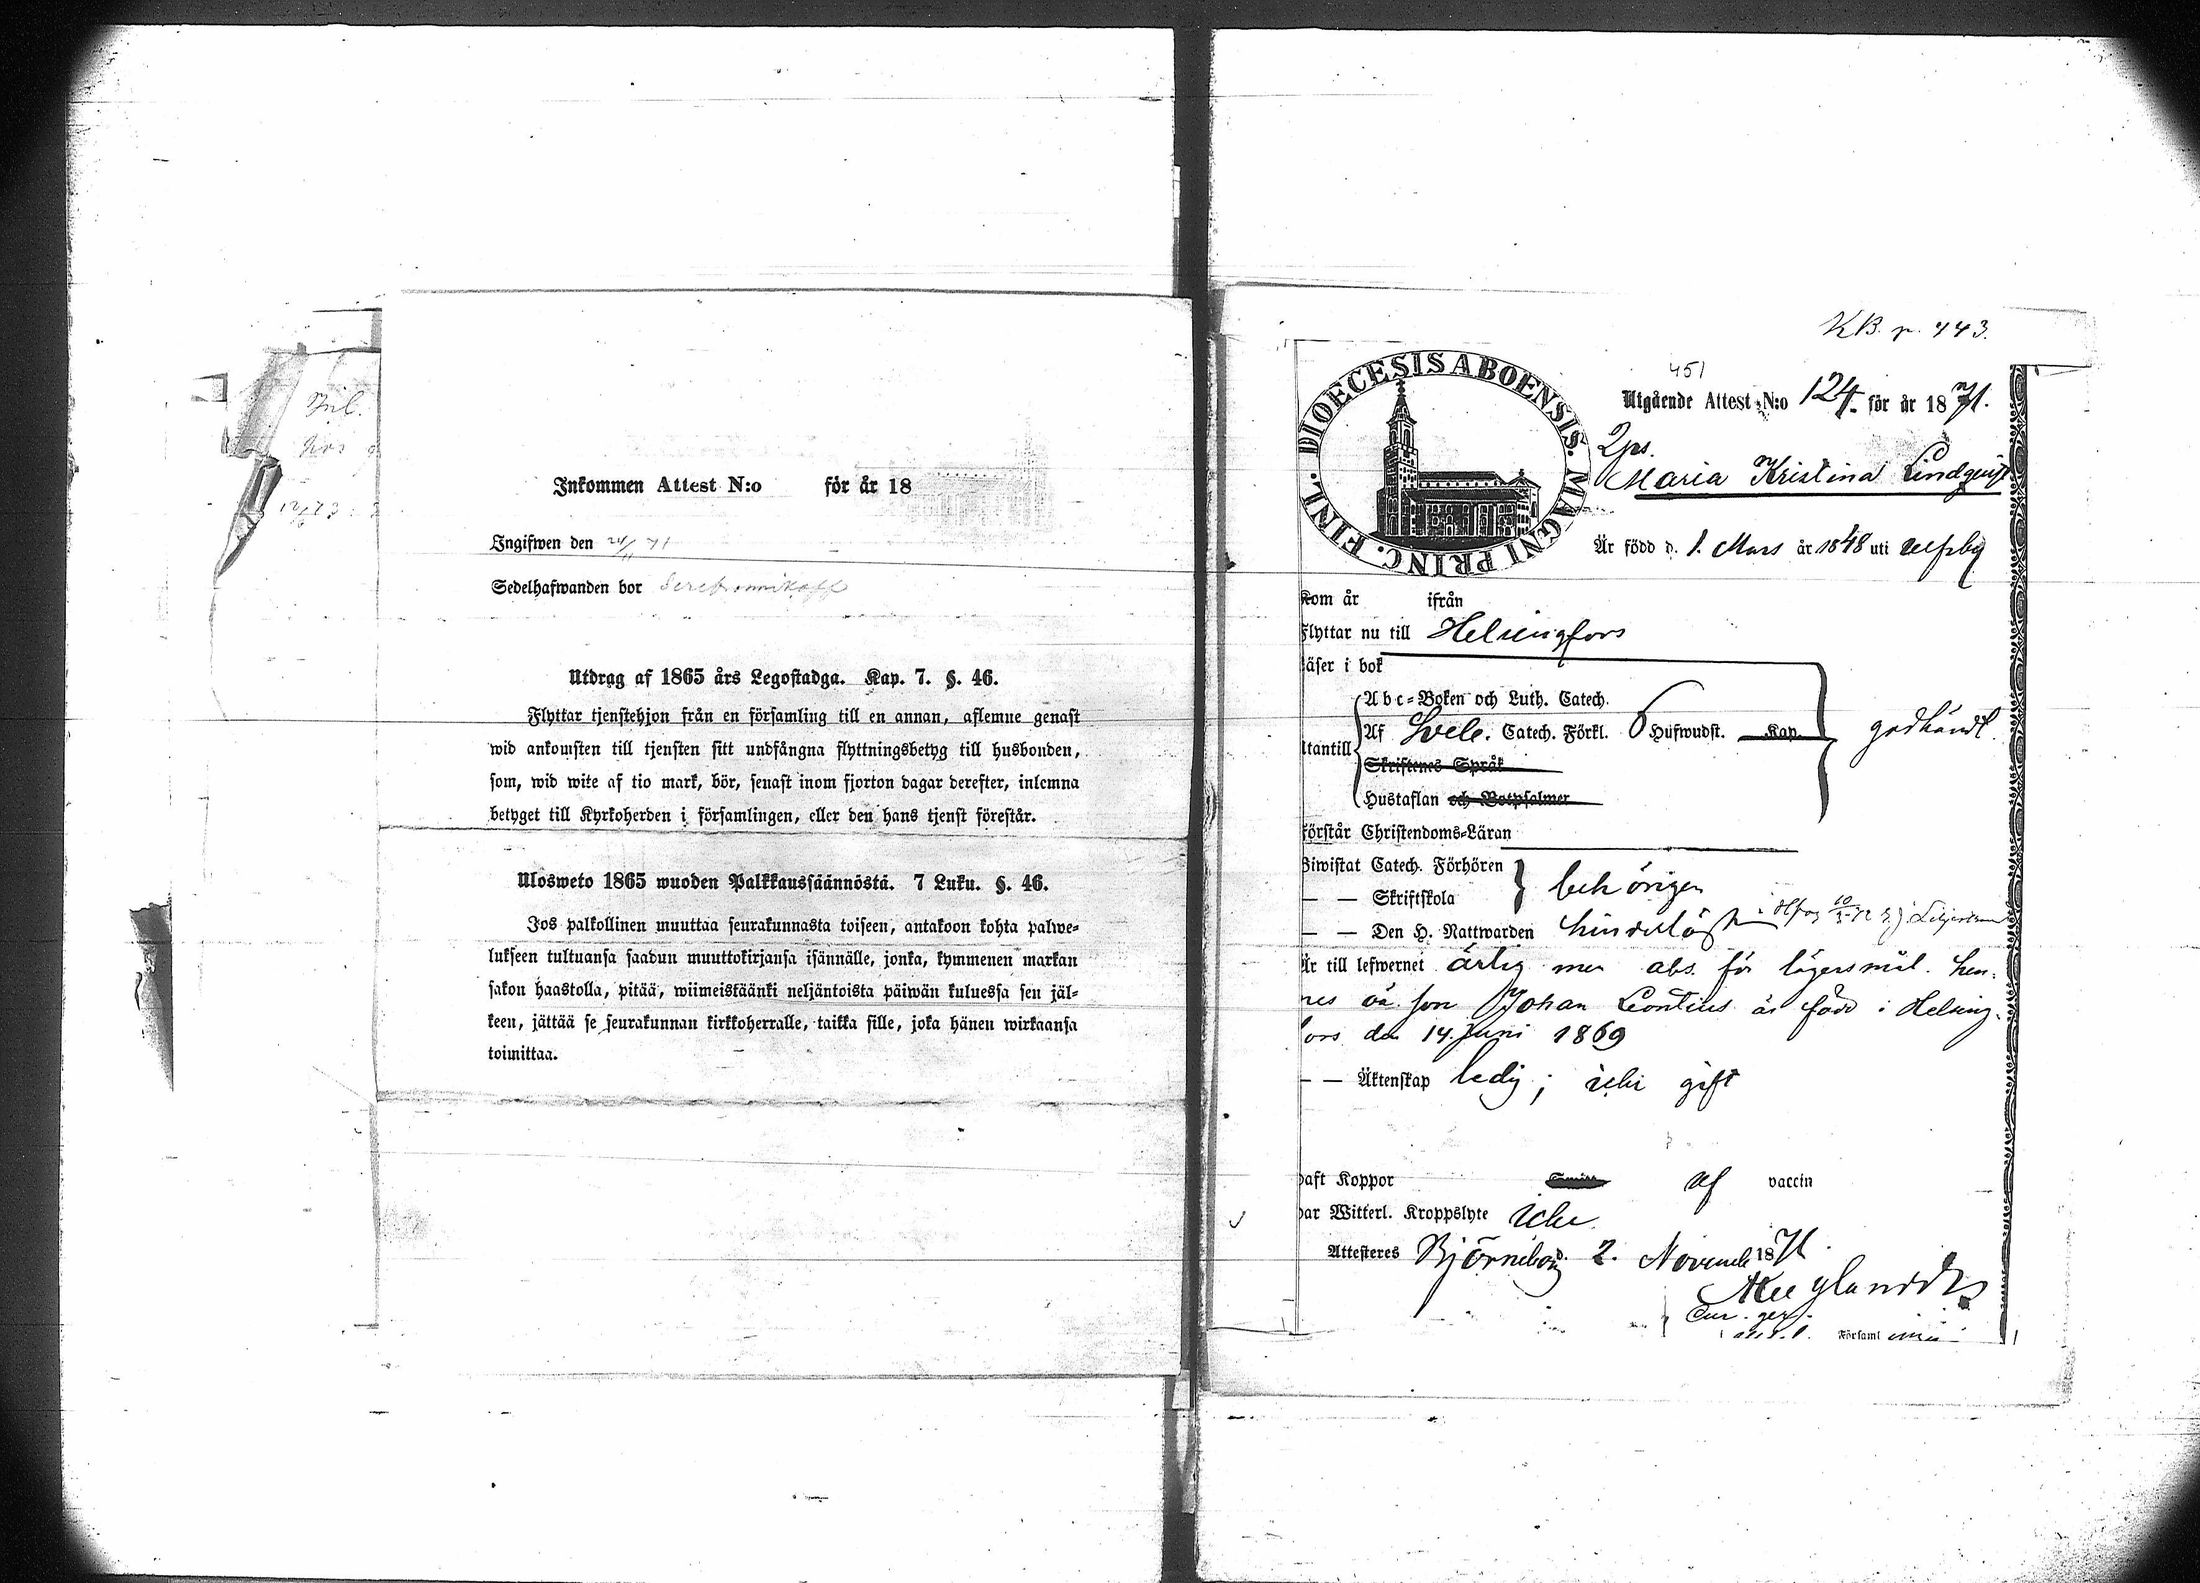 Inkommen Attest N:o för år 18
Ingifwen den 24/11 71
Sedelhafwanden bor
Utdrag af 1865 års Legostadga. Kap. 7. §. 46.
Flyttar tjenstehjon från en församling till en annan, aflemne genast
wid ankomsten till tjensten sitt undfångna flyttningsbetyg till husbonden,
som, wid wite af tio mark, bör, senast inom fjorton dagar derefter, inlemna
betyget till Kyrkoherden i församlingen, eller den hans tjenst förestår.
Ulosweto 1865 wuoden Palkkaussäännöstä. 7 Luku. §. 46.
Jos palkollinen muuttaa seurakunnasta toiseen, antakoon kohta palwe-
lukseen tultuansa saadun muuttokirjansa isännälle, jonka, kymmenen markan
sakon haastolla, pitää, wiimeistäänki neljäntoista päiwän kuluessa sen jäl-
keen, jättää se seurakunnan kirkkoherralle, taikka sille, joka hänen wirkaansa
toimittaa.
KB. p. 443.
451
DIOECESIS ABOENSIS. MAGNI PRINC. FINL.
Utgående Attest N:o 124. för år 1871.
2ps.
Maria Kristina Lindqvist
Är född d. 1. Mars år 1848 uti Ulfsby
Kom år ifrån
Flyttar nu till Helsingfors
läser i bok
Abc-Boken och Luth. Catech.
Af Sveb. Catech. Förkl. 6 Hufwudst. Kap. godkändt.
Utantill
Skriftenes Språk
Hustaflan och Botpsalmer
Förstår Christendoms-Läran
Biwistat Catech. Förhören
— — Skriftskola behörigen
— — Den H. Nattwarden
Är till lefwernet ärlig men abs. för lägersmål. hen-
nes oä. son Johan Leontius är född i Helsing-
fors den 14. Juni 1869
— — Äktenskap ledig; icke gift
haft Koppor af vaccin
har Witterl. Kroppslyte icke
Attesteres Björneborg d. 2. Novemb 1871.
Församl